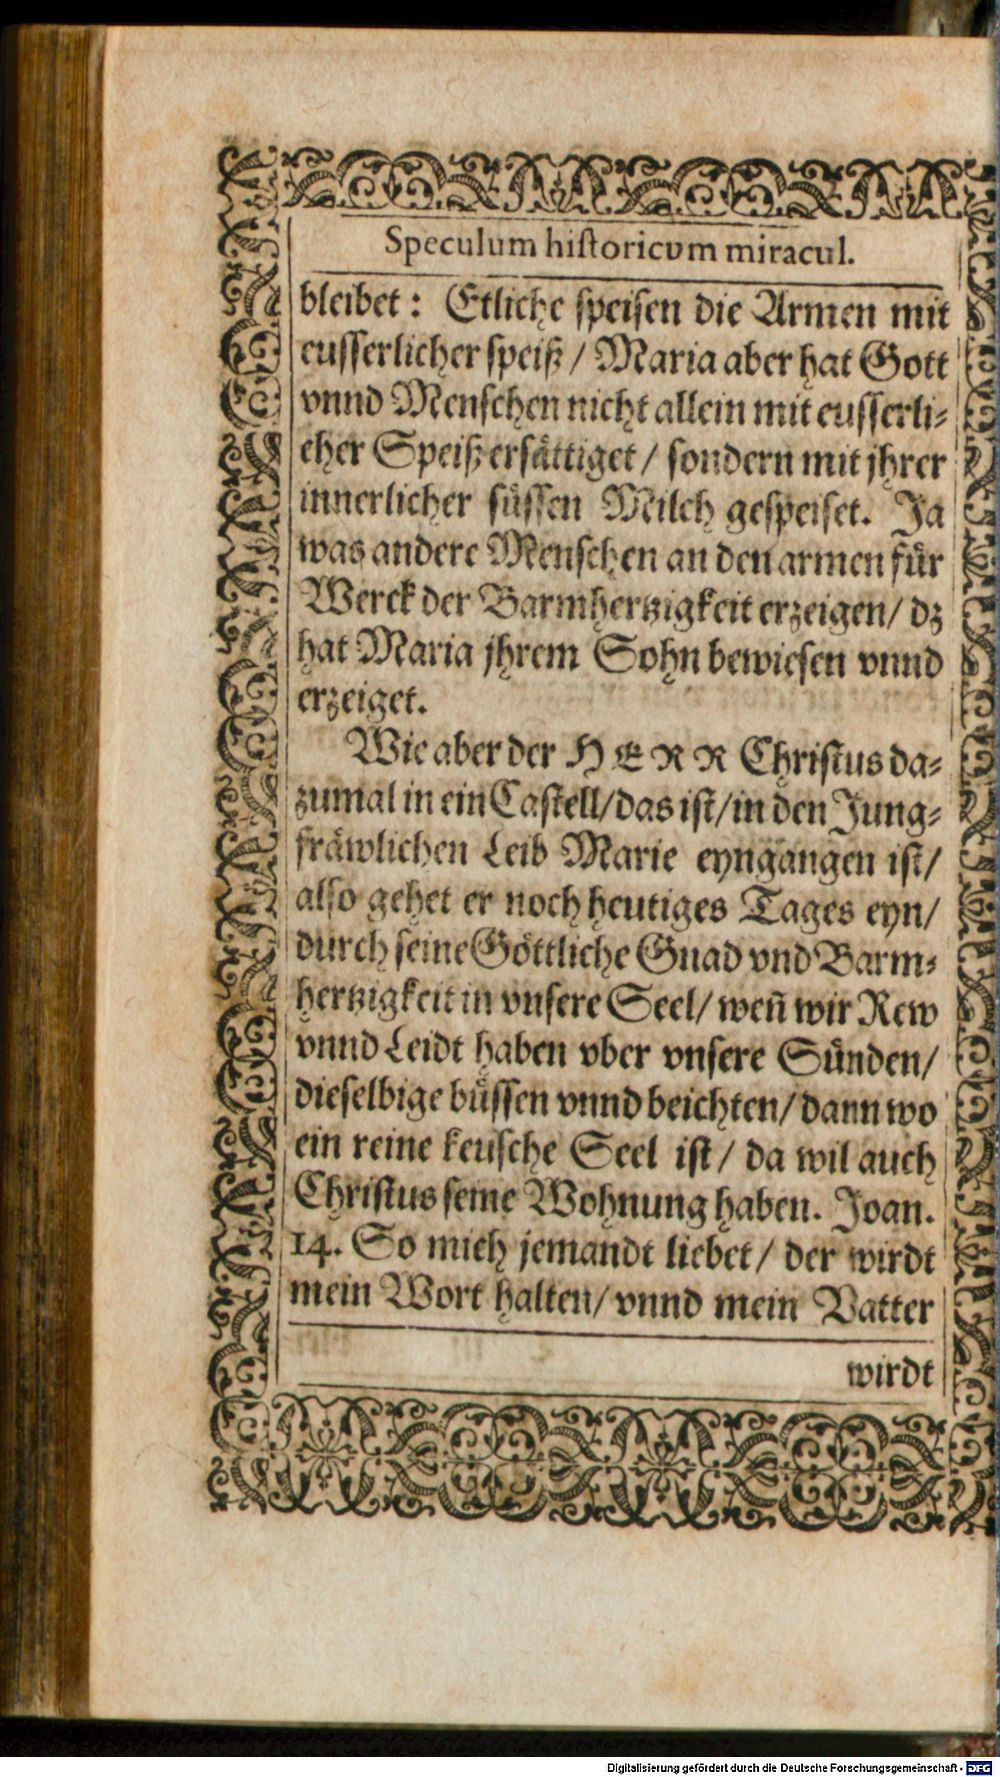 Speculum historicvm miracul.
bleibet: Etliche speisen die Armen mit
eusserlicher speiß / Maria aber hat Gott
vnnd Menschen nicht allein mit eusserli-
cher Speiß ersättiget / sondern mit jhrer
innerlicher süssen Milch gespeiset. Ja
was andere Menschen an den armen für
Werck der Barmhertzigkeit erzeigen / dz
hat Maria jhrem Sohn bewiesen vnnd
erzeiget.
Wie aber der HERR Christus da-
zumal in ein Castell / das ist / in den Jung-
fräwlichen Leib Marie eyngangen ist /
also gehet er noch heutiges Tages eyn /
durch seine Göttliche Gnad vnd Barm-
hertzigkeit in vnsere Seel / weñ wir Rew
vnnd Leidt haben vber vnsere Sünden /
dieselbige büssen vnnd beichten / dann wo
ein reine keusche Seel ist / da wil auch
Christus seine Wohnung haben. Joan.
14. So mich jemandt liebet / der wirdt
mein Wort halten / vnnd mein Vatter
wirdt
Digitalisierung gefördert durch die Deutsche Forschungsgemeinschaft - DFG